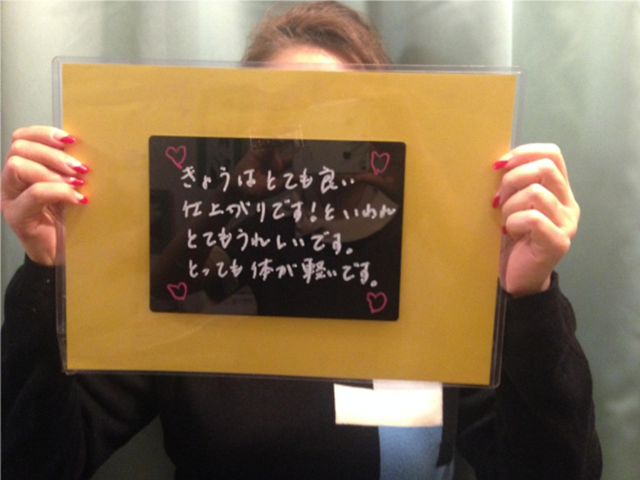 きょうはとても良い
仕上がりです!といわれ
とてもうれしいです。
とっても体が軽いです。